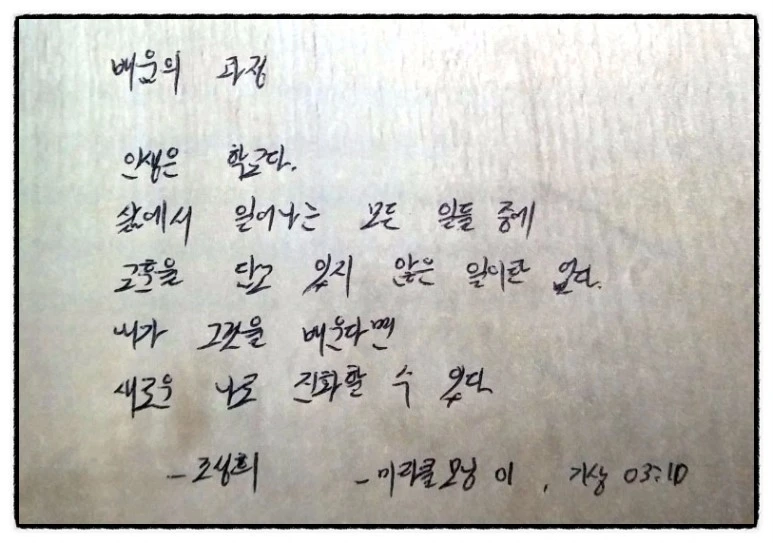 배움의 과정
인생은 학교다.
삶에서 일어나는 모든 일들 중에
교훈을 담고 있지 않은 일이란 없다.
내가 그것을 배운다면
새로운 나로 진화할 수 있다
- 조성희 - 미라클모닝 01, 기상 03:10